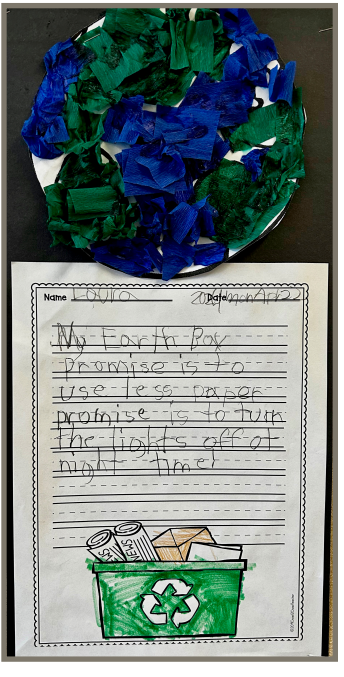 Name Laura Date 2024 mon Apr 22
My Earth Day
promise is to
use less paper
promise is to turn
the lights off at
night time!
NEWS